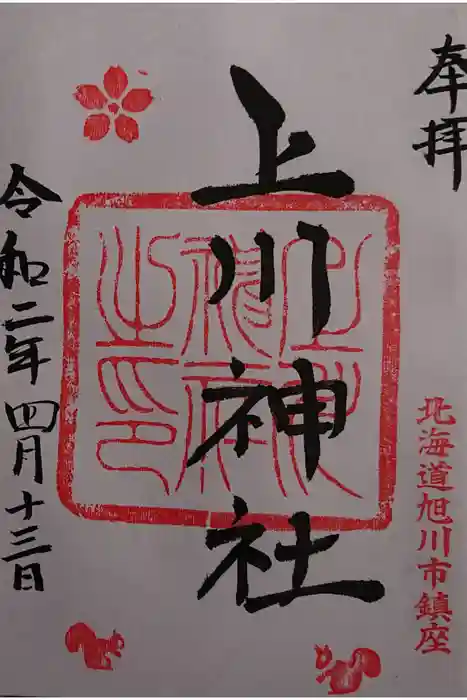 奉拝
北海道旭川市鎮座
上川神社
令和二年四月十三日